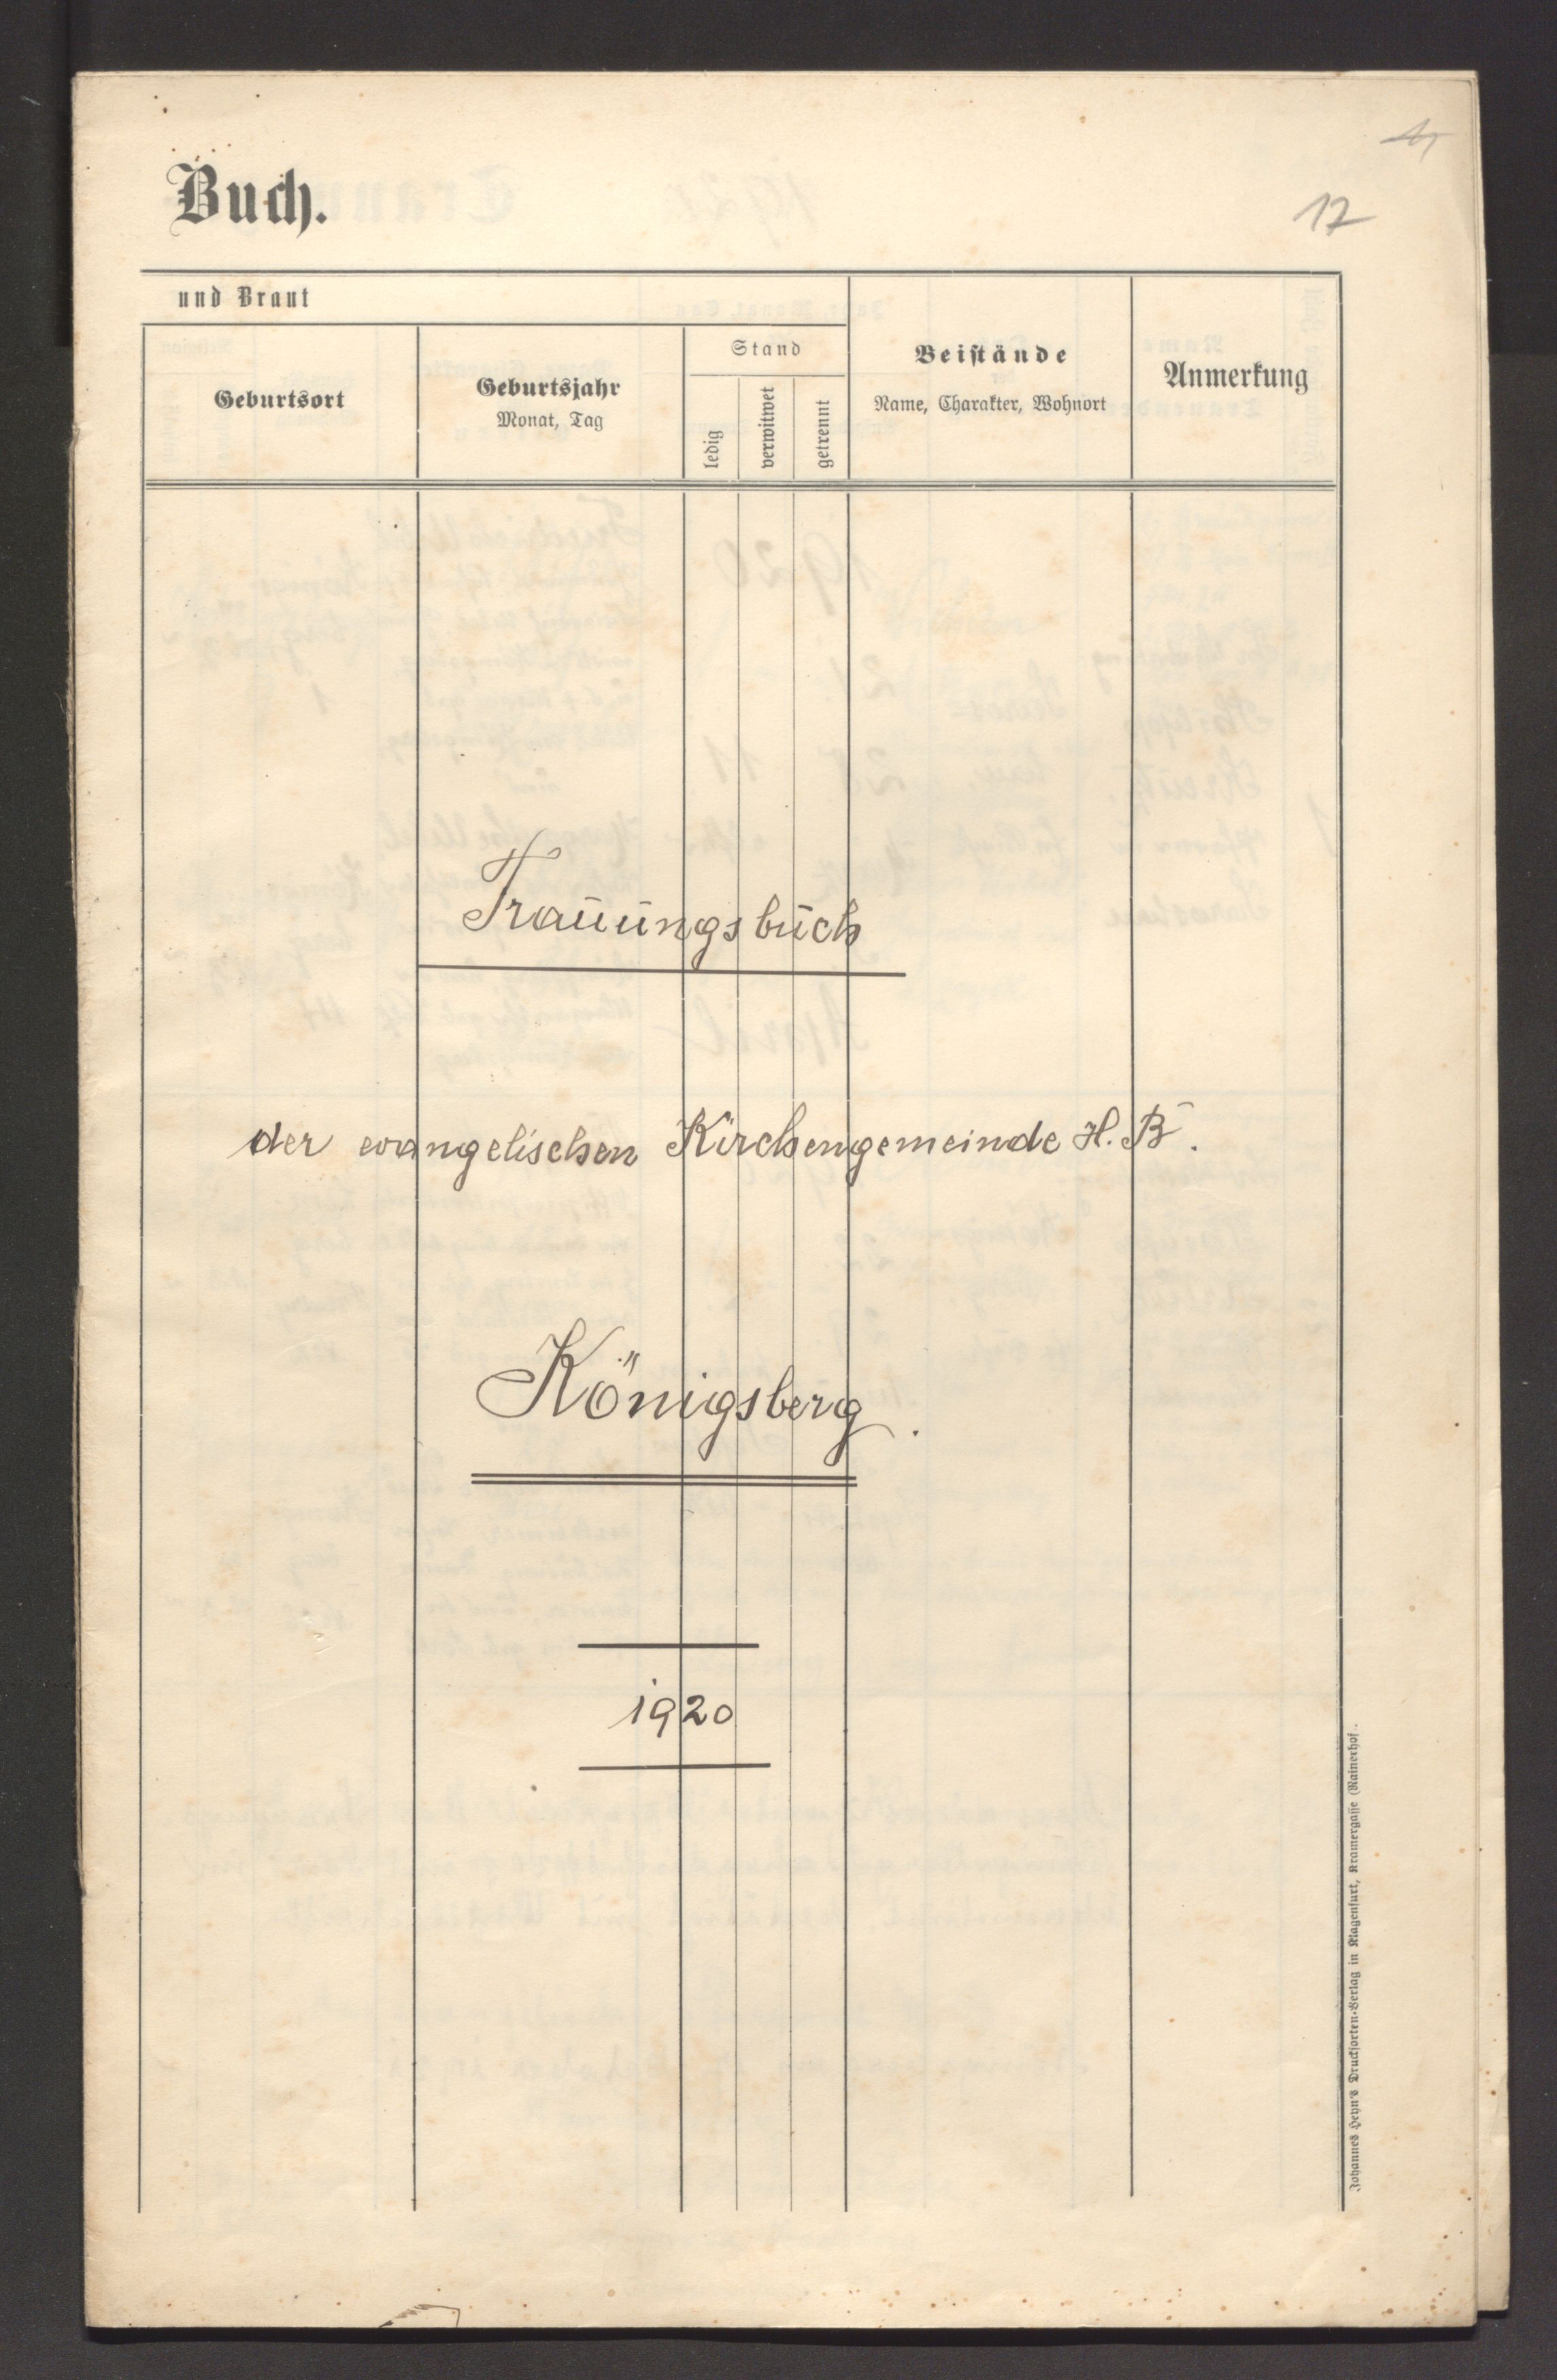 Buch.
17
und Braut
Geburtsort
Geburtsjahr
Monat, Tag
Stand
ledig
verwitwet
getrennt
Beistände
Name, Charakter, Wohnort
Anmerkung
Trauungsbuch
der evangelischen Kirchengemeinde H. B.
Königsberg.
1920
Johannes Heyn's Drucksorten-Verlag in Klagenfurt, Kramergasse (Rainerhof.